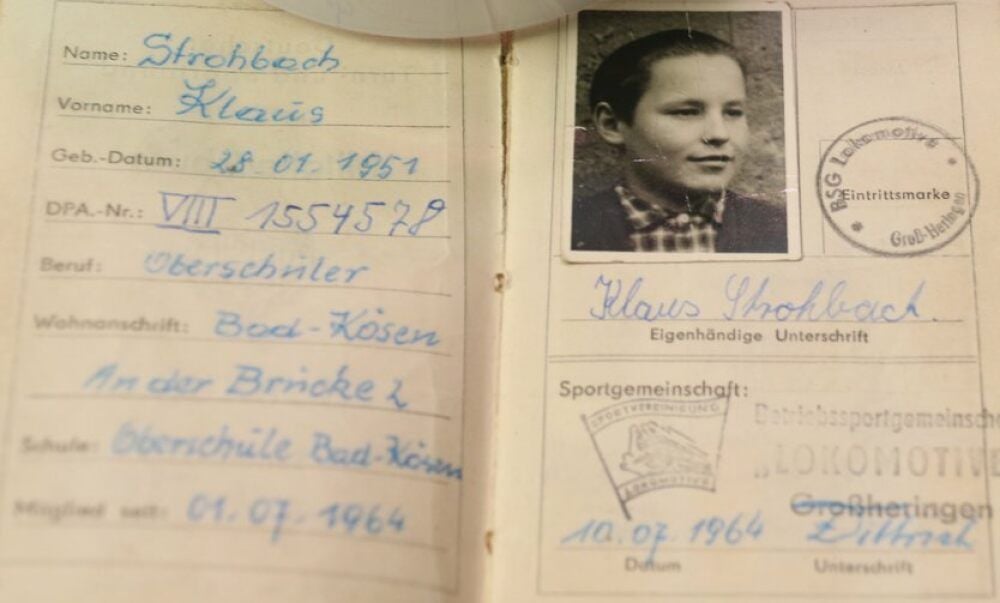 Name: Strohbach
Vorname: Klaus
Geb.-Datum: 28.01.1951
DPA.-Nr.: VIII 1554578
Beruf: Oberschüler
Wohnanschrift: Bad-Kösen
An der Brücke 2
Schule: Oberschule Bad-Kösen
Mitglied seit: 01.07.1964
BSG Lokomotive
Eintrittsmarke
Groß-Heringen
Klaus Strohbach.
Eigenhändige Unterschrift
Sportgemeinschaft:
SPORTVEREINIGUNG
LOKOMOTIVE
Betriebssportgemeinsch
„LOKOMOTIVE
Großheringen
10.07.1964 Dittrich
Datum Unterschrift